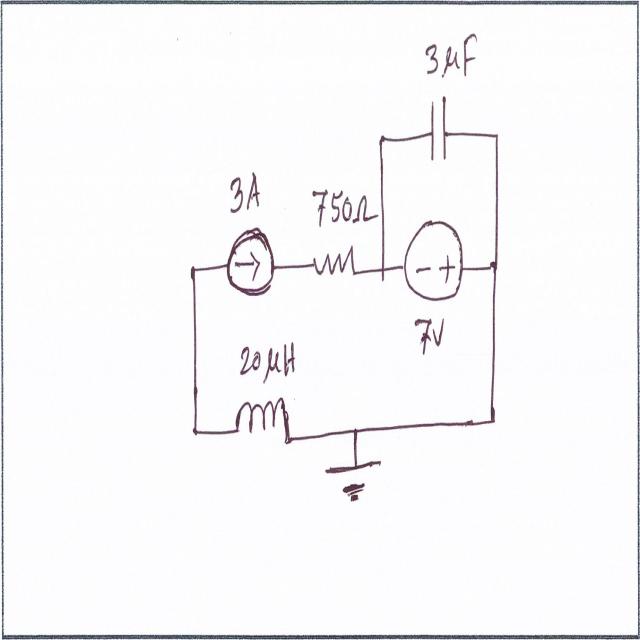 3µF
3A
750Ω
- +
7V
20µH